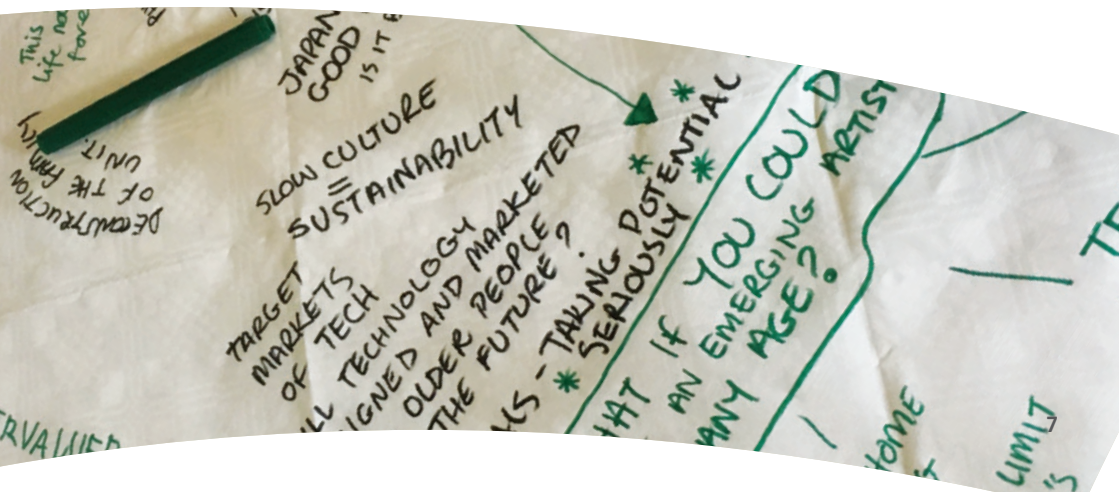 This
life
fore
DECONSTRUCTION
OF THE FAMILY
UNIT.
JAPAN
GOOD
IS IT
SLOW CULTURE
=
SUSTAINABILITY
TARGET
MARKETS
OF TECH
TECHNOLOGY
IGNED AND MARKETED
OLDER PEOPLE
THE FUTURE?
- TAKING POTENTIAL
SERIOUSLY
HAT IF YOU COULD
AN EMERGING ARTIST
ANY AGE?
HOME
LIMIT
'S
TE
ERVALUED
7